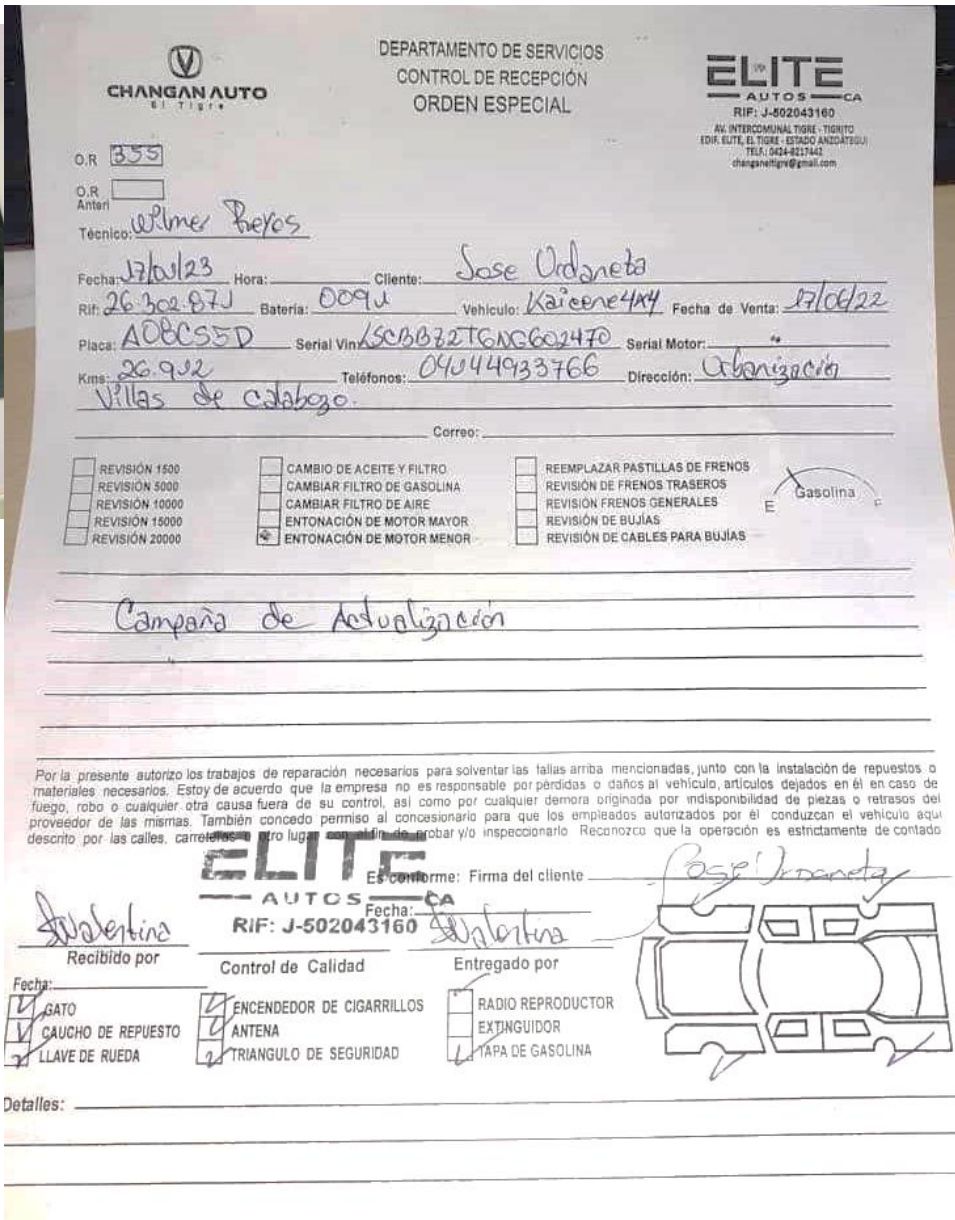 CHANGAN AUTO
El Tigre
DEPARTAMENTO DE SERVICIOS
CONTROL DE RECEPCIÓN
ORDEN ESPECIAL
ELITE
AUTOS CA
RIF: J-502043160
AV. INTERCOMUNAL TIGRE - TIGRITO
EDIF. ELITE, EL TIGRE - ESTADO ANZOÁTEGUI
TELF.: 0424-8217442
changaneltigre@gmail.com
O.R 355
O.R
Anteri
Técnico: Wilmer Reyes
Fecha: 17/01/23 Hora: Cliente: Jose Urdaneta
Rif: 26.302.871 Batería: 0091 Vehiculo: Kaicene 4x4 Fecha de Venta: 17/06/22
Placa: A08CS5D Serial Vin: LSCBBZ2T6NG602470 Serial Motor:
Kms: 26.912 Teléfonos: 04144933766 Dirección: Urbanización
Villas de calabozo.
Correo:
REVISIÓN 1500
REVISIÓN 5000
REVISIÓN 10000
REVISIÓN 15000
REVISIÓN 20000
CAMBIO DE ACEITE Y FILTRO
CAMBIAR FILTRO DE GASOLINA
CAMBIAR FILTRO DE AIRE
ENTONACIÓN DE MOTOR MAYOR
ENTONACIÓN DE MOTOR MENOR
REEMPLAZAR PASTILLAS DE FRENOS
REVISIÓN DE FRENOS TRASEROS
REVISIÓN FRENOS GENERALES
REVISIÓN DE BUJÍAS
REVISIÓN DE CABLES PARA BUJÍAS
Gasolina
E F
Campaña de Actualización
Por la presente autorizo los trabajos de reparación necesarios para solventar las fallas arriba mencionadas, junto con la instalación de repuestos o
materiales necesarios. Estoy de acuerdo que la empresa no es responsable por pérdidas o daños al vehículo, artículos dejados en él en caso de
fuego, robo o cualquier otra causa fuera de su control, así como por cualquier demora originada por indisponibilidad de piezas o retrasos del
proveedor de las mismas. También concedo permiso al concesionario para que los empleados autorizados por él conduzcan el vehículo aquí
descrito por las calles, carreteras o otro lugar con el fin de probar y/o inspeccionarlo Reconozco que la operación es estrictamente de contado
ELITE
AUTOS CA
RIF: J-502043160
Es conforme: Firma del cliente Jose Urdaneta
Fecha:
Valentina
Recibido por
Control de Calidad
Valentina
Entregado por
Fecha:
GATO
CAUCHO DE REPUESTO
LLAVE DE RUEDA
ENCENDEDOR DE CIGARRILLOS
ANTENA
TRIANGULO DE SEGURIDAD
RADIO REPRODUCTOR
EXTINGUIDOR
TAPA DE GASOLINA
Detalles: